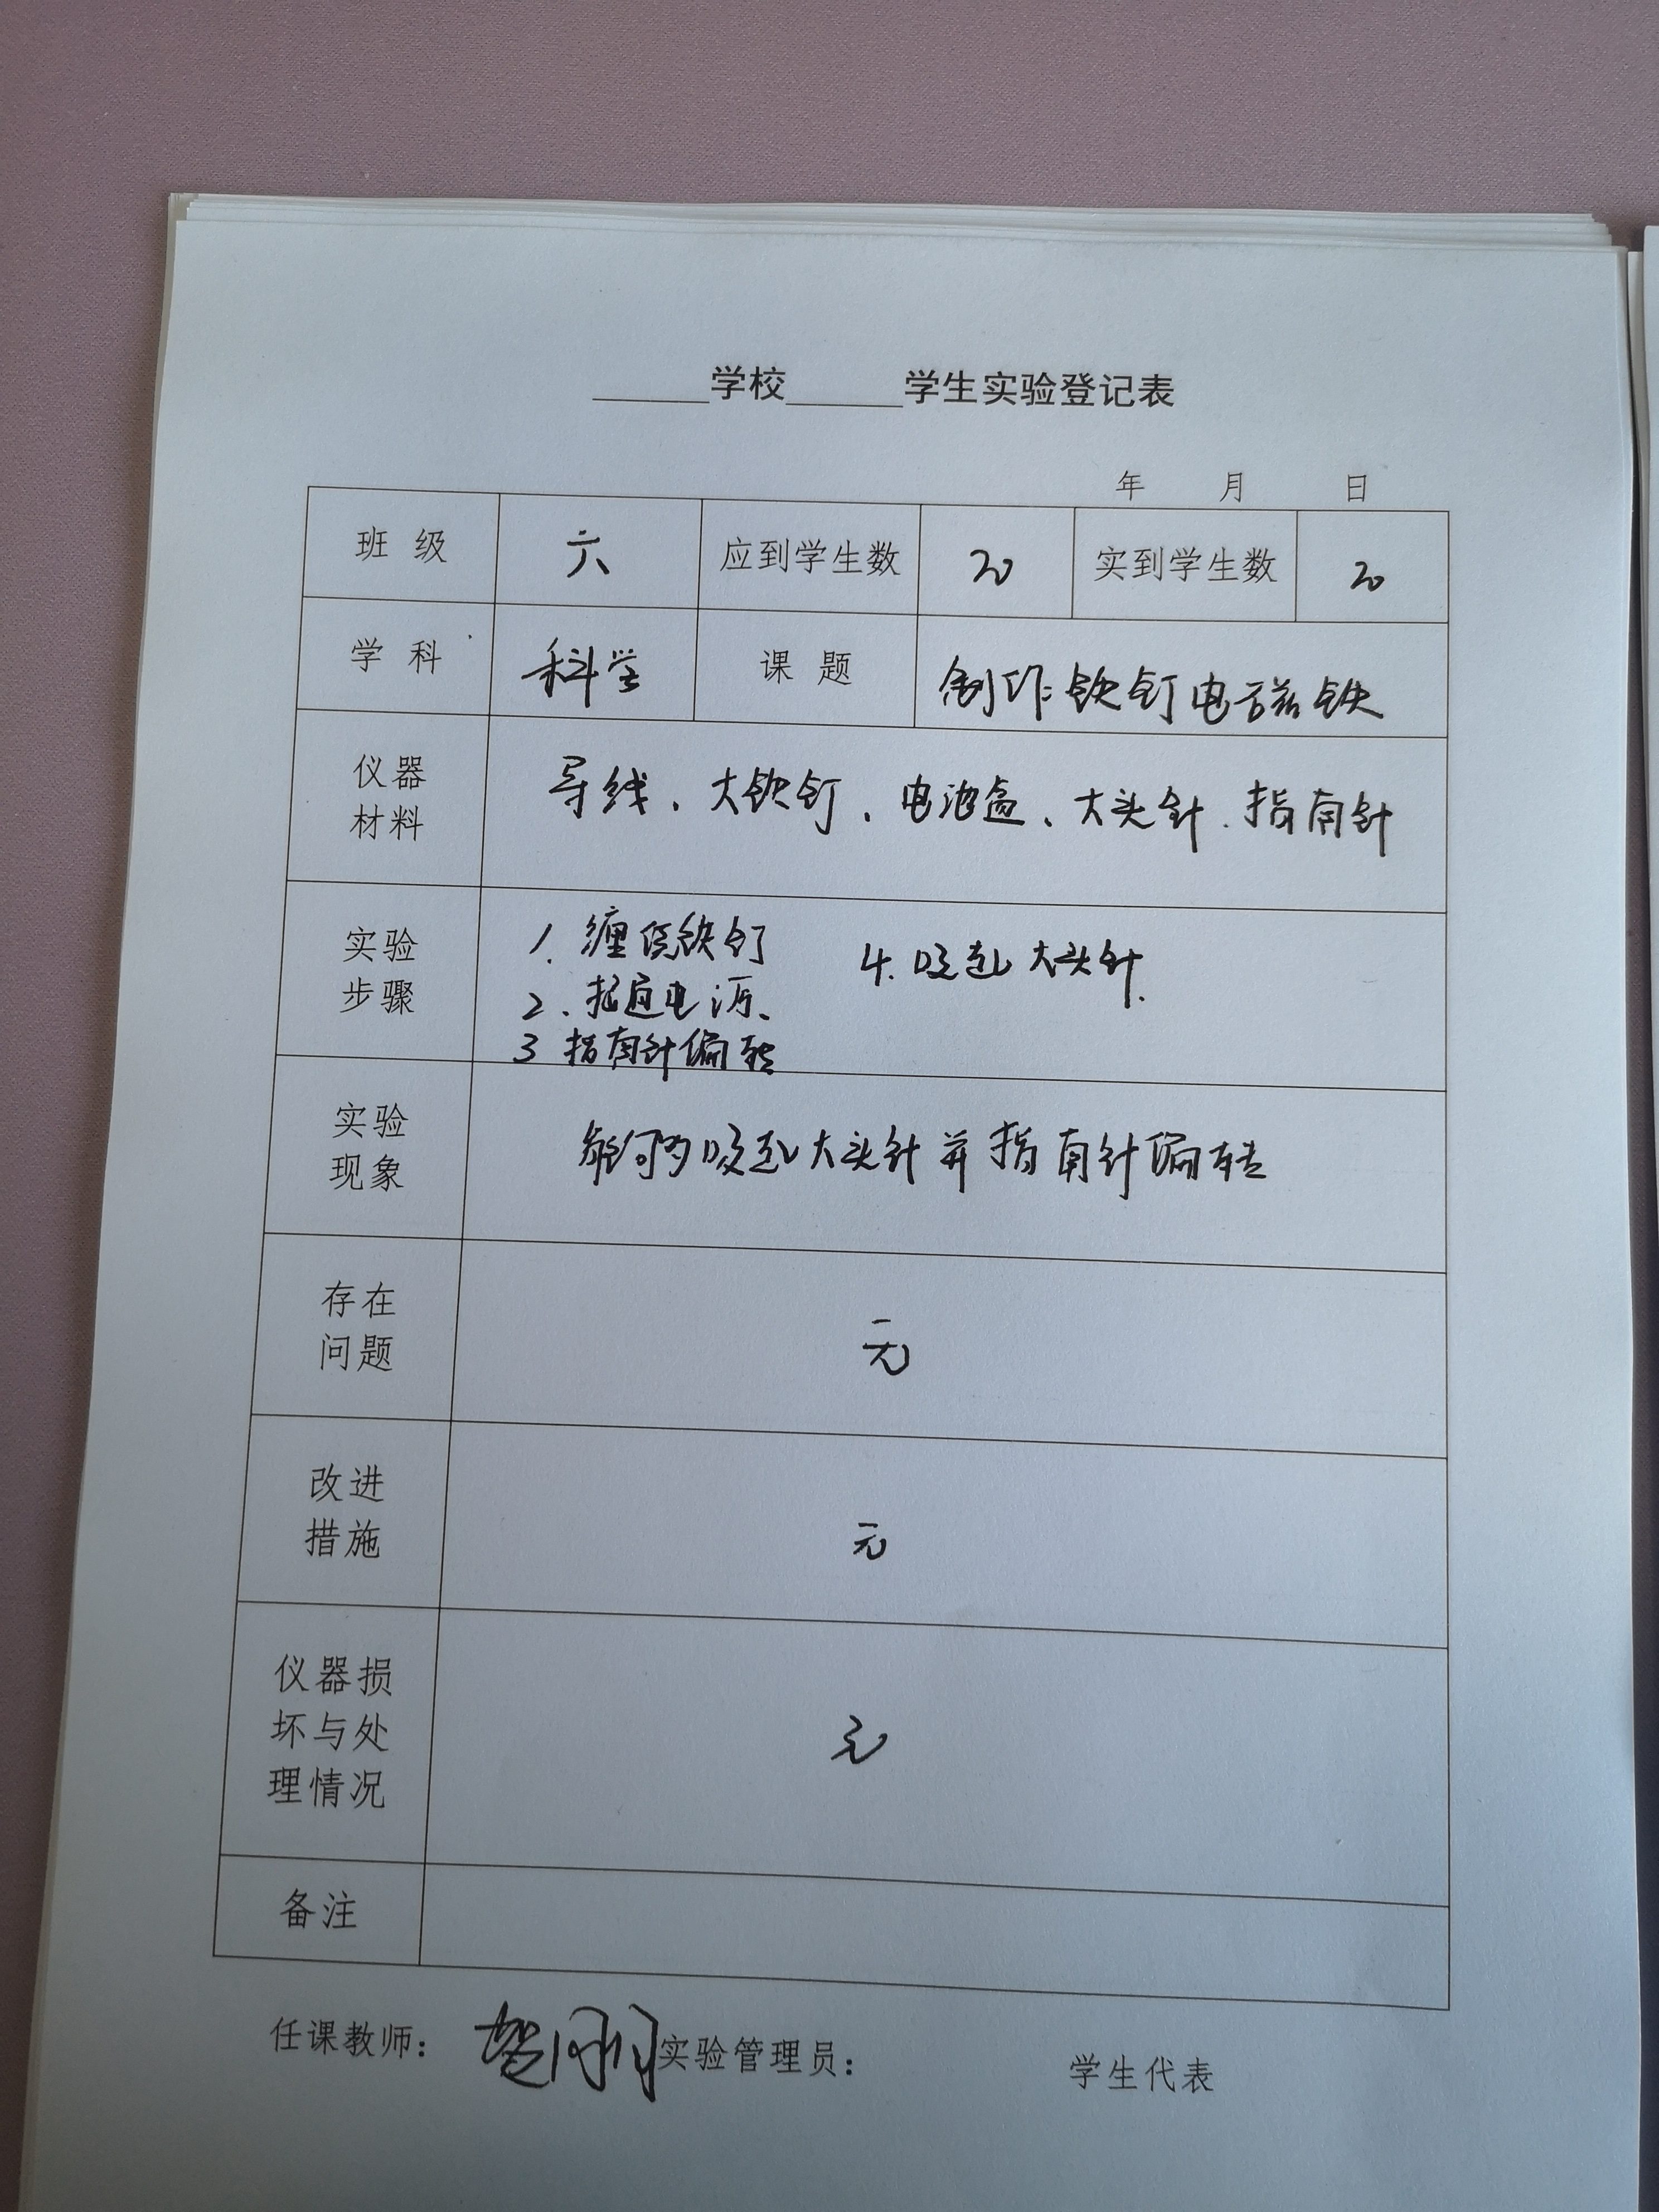 ______学校______学生实验登记表
年 月 日
班 级 六 应到学生数 20 实到学生数 20
学 科 科学 课 题 制作铁钉电磁铁
仪器
材料
导线、大铁钉、电池盒、大头针、指南针
实验
步骤
1. 缠绕铁钉
2、接通电源、
3 指南针偏转
4. 吸起大头针.
实验
现象
能够吸起大头针并指南针偏转
存在
问题
无
改进
措施
无
仪器损
坏与处
理情况
无
备注
任课教师: 实验管理员: 学生代表